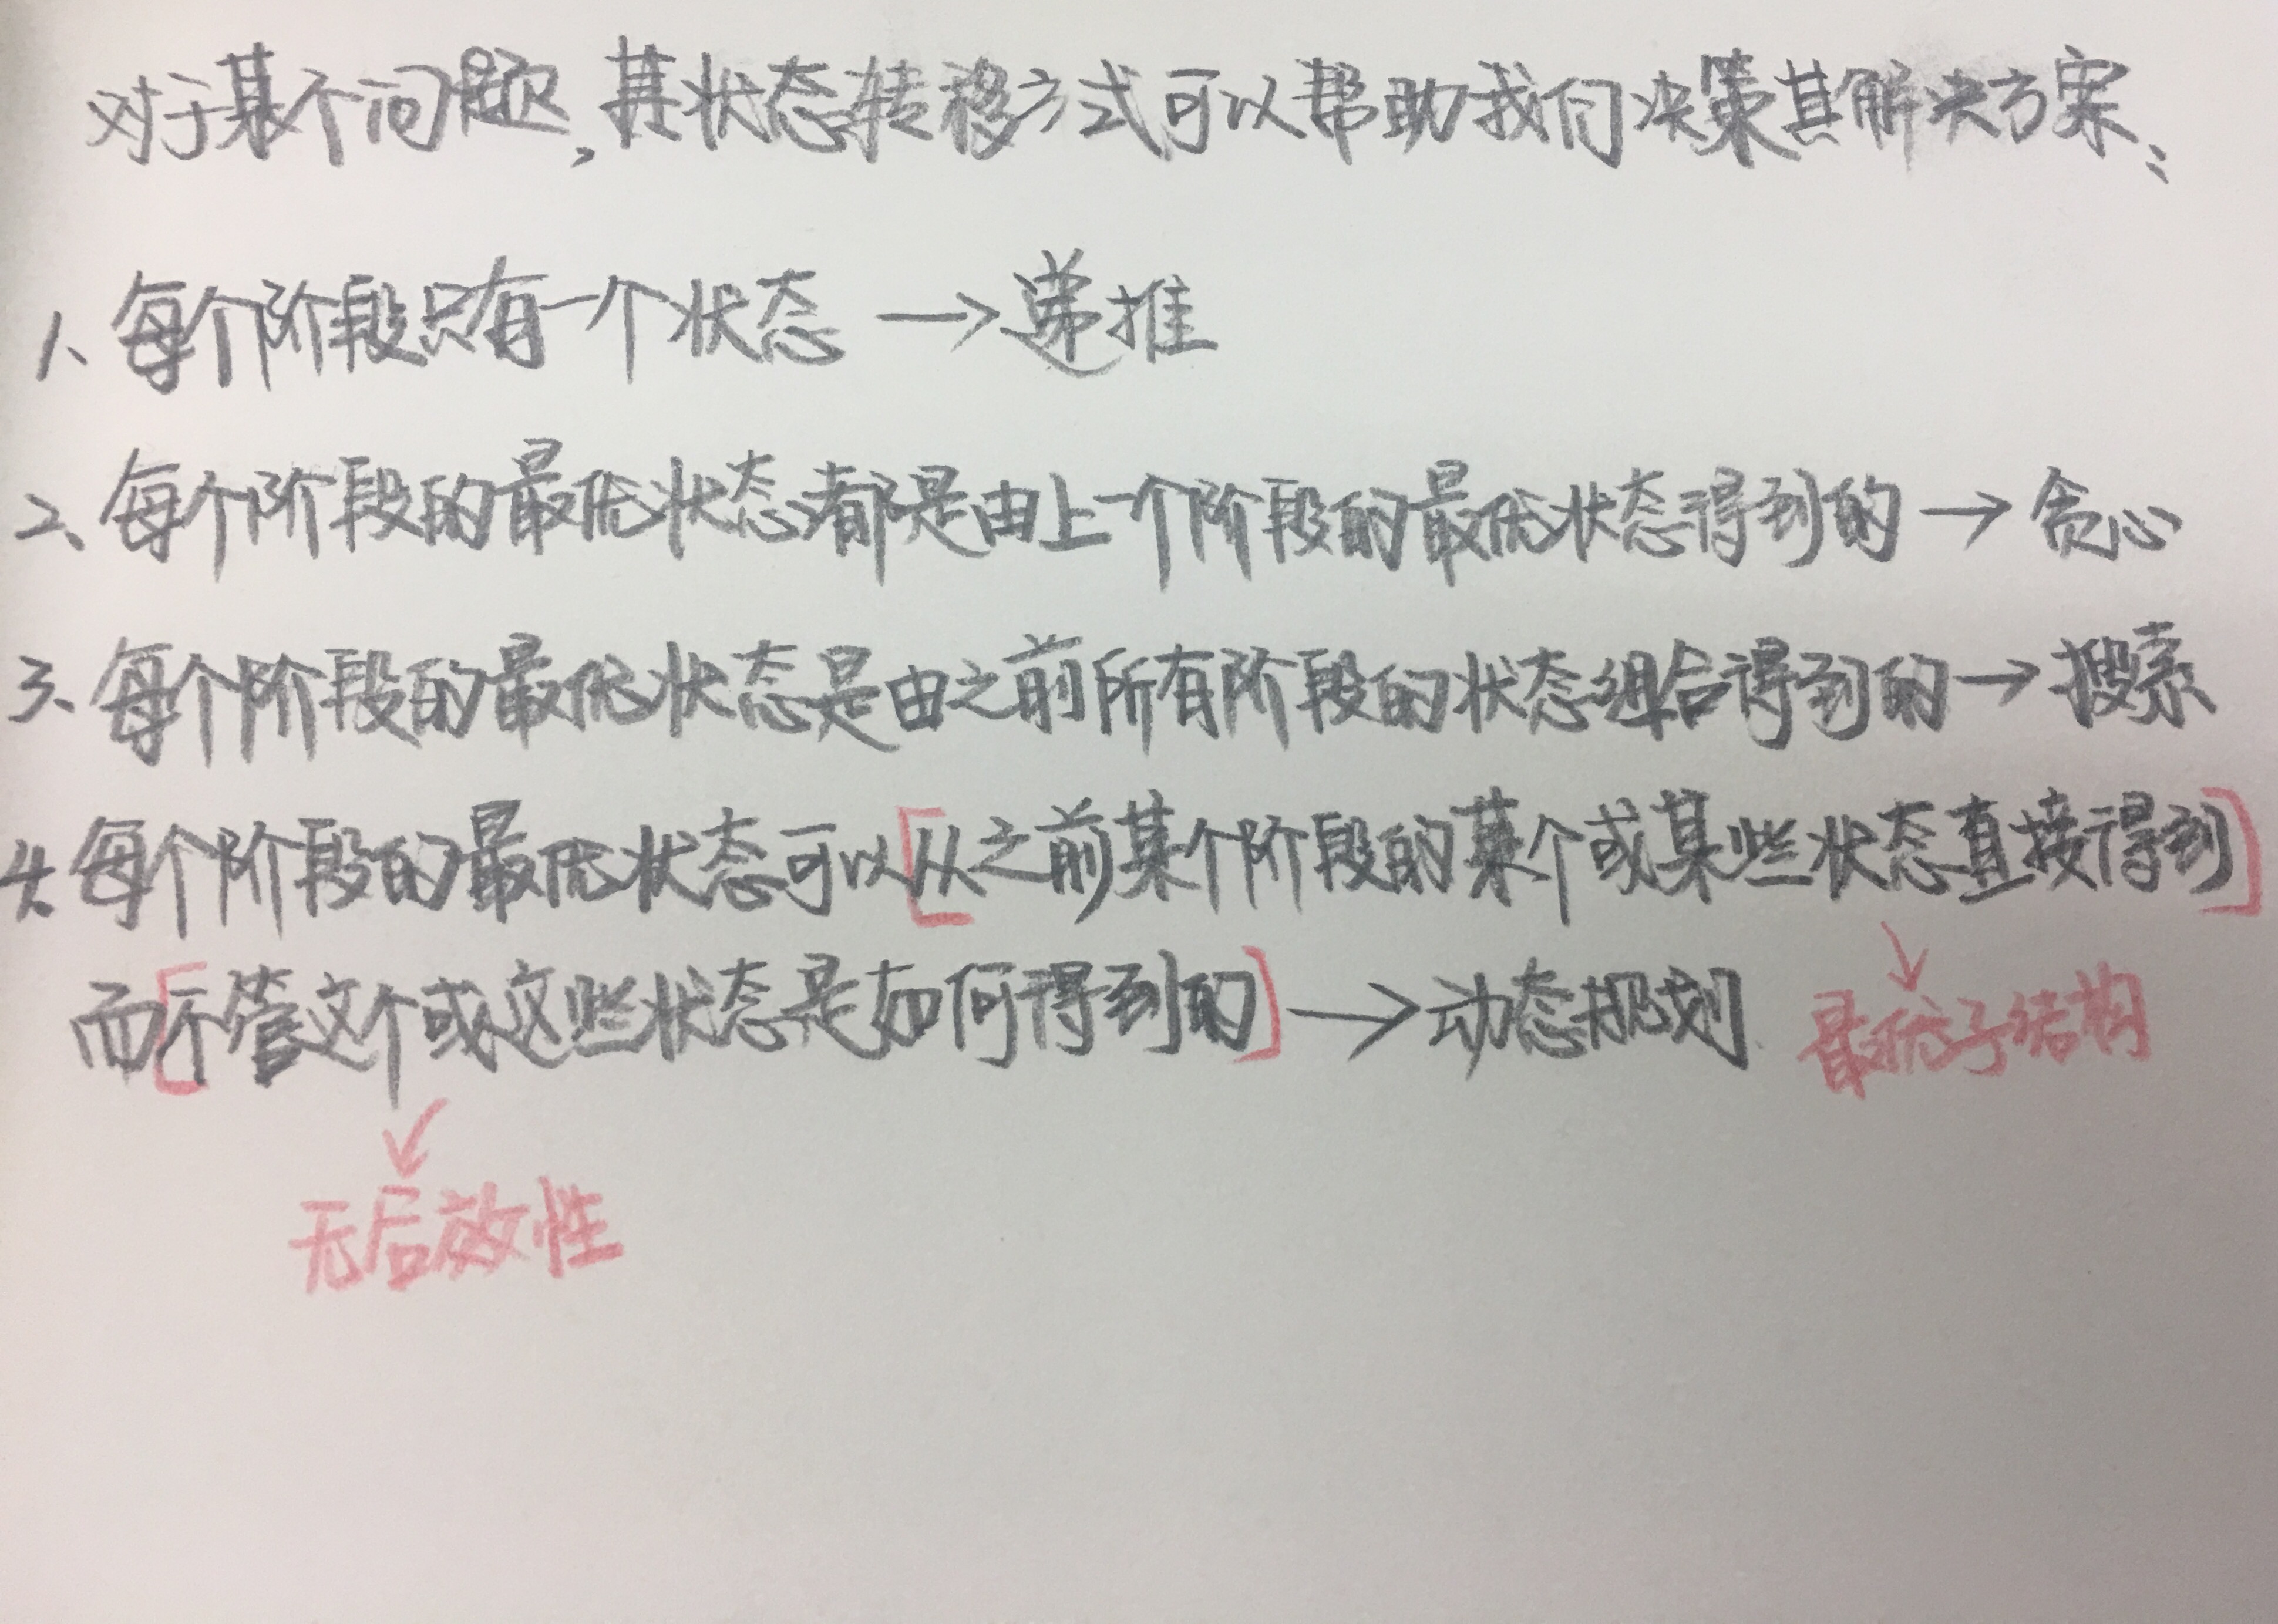 对于某个问题,其状态转移方式可以帮助我们决策其解决方案:
1、每个阶段只有一个状态 →递推
2、每个阶段的最优状态都是由上一个阶段的最优状态得到的→贪心
3、每个阶段的最优状态是由之前所有阶段的状态组合得到的→搜索
4、每个阶段的最优状态可以[从之前某个阶段的某个或某些状态直接得到]
而[不管这个或这些状态是如何得到的]→动态规划
↓最优子结构
↓无后效性